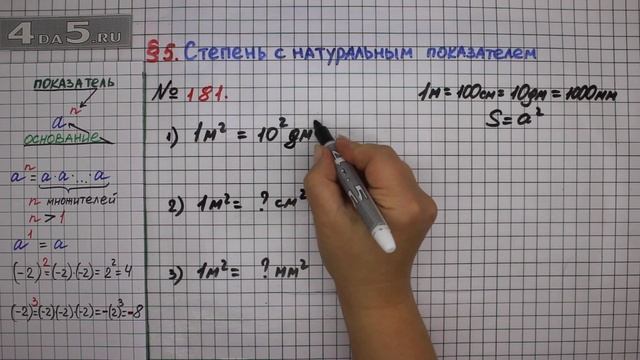 4DA5.RU
§5. Степень с натуральным показателем
показатель
aⁿ
основание
aⁿ = a·a·...·a
n множителей
n > 1
a¹ = a
(-2)² = (-2)·(-2) = 2² = 4
(-2)³ = (-2)(-2)(-2) = -(2)³ = -8
№ 181.
1м = 100см = 10дм = 1000мм
S = a²
1) 1м² = 10² дм
2) 1м² = ? см²
3) 1м² = ? мм²